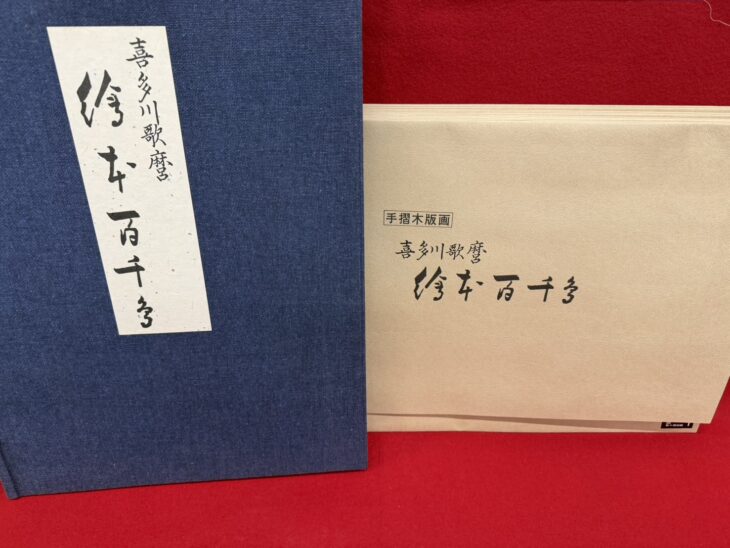 喜多川歌麿
繪本百千鳥
手摺木版画
喜多川歌麿
繪本百千鳥